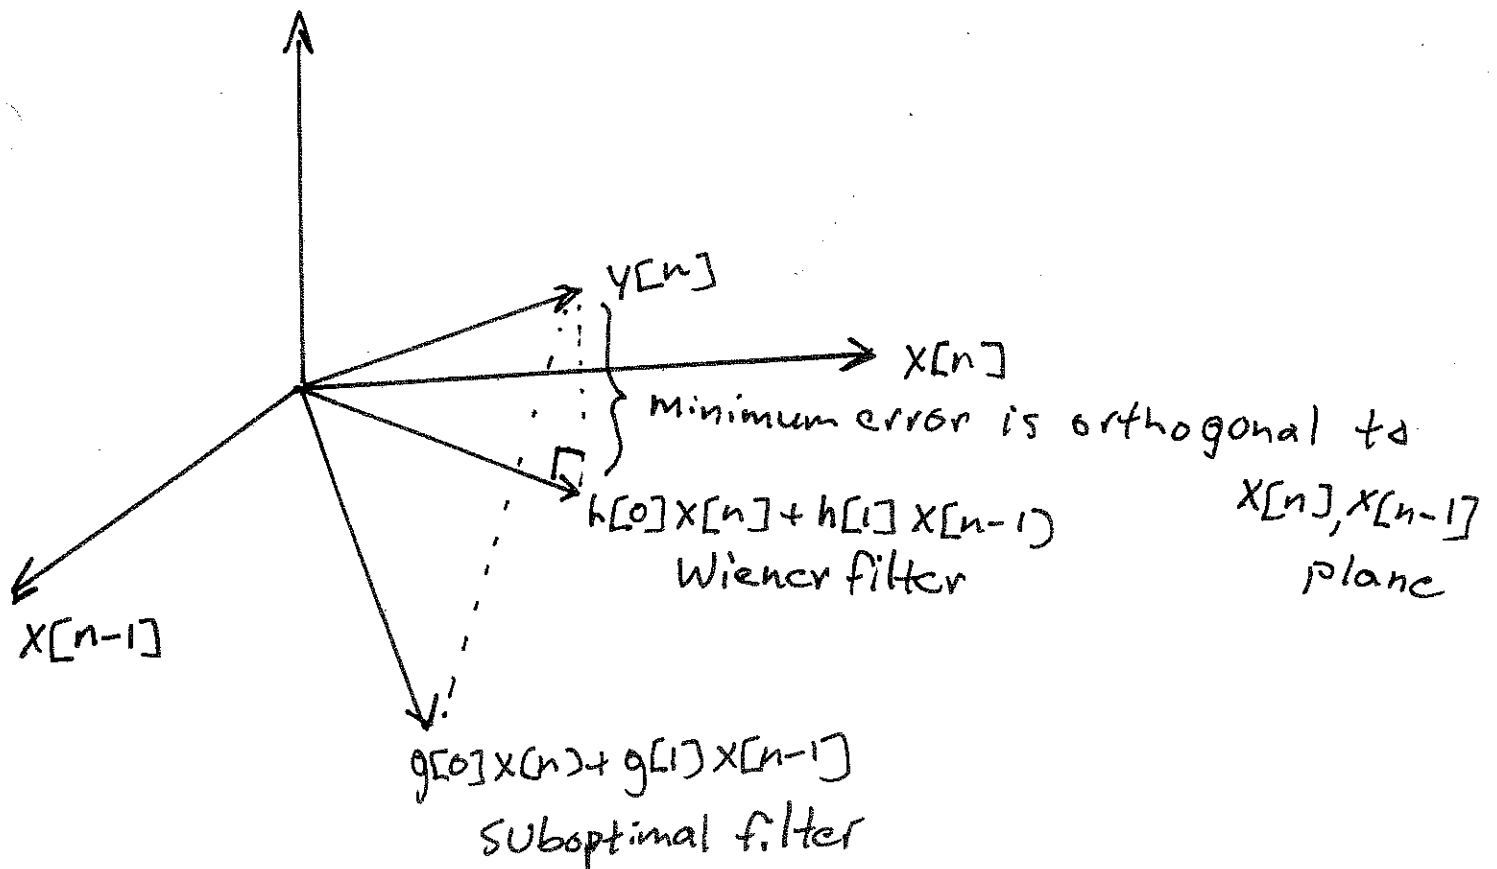 y[n]
x[n]
minimum error is orthogonal to
x[n], x[n-1]
plane
h[0]x[n] + h[1]x[n-1)
Wiener filter
x[n-1]
g[0]x(n)+ g[1)x[n-1]
suboptimal filter